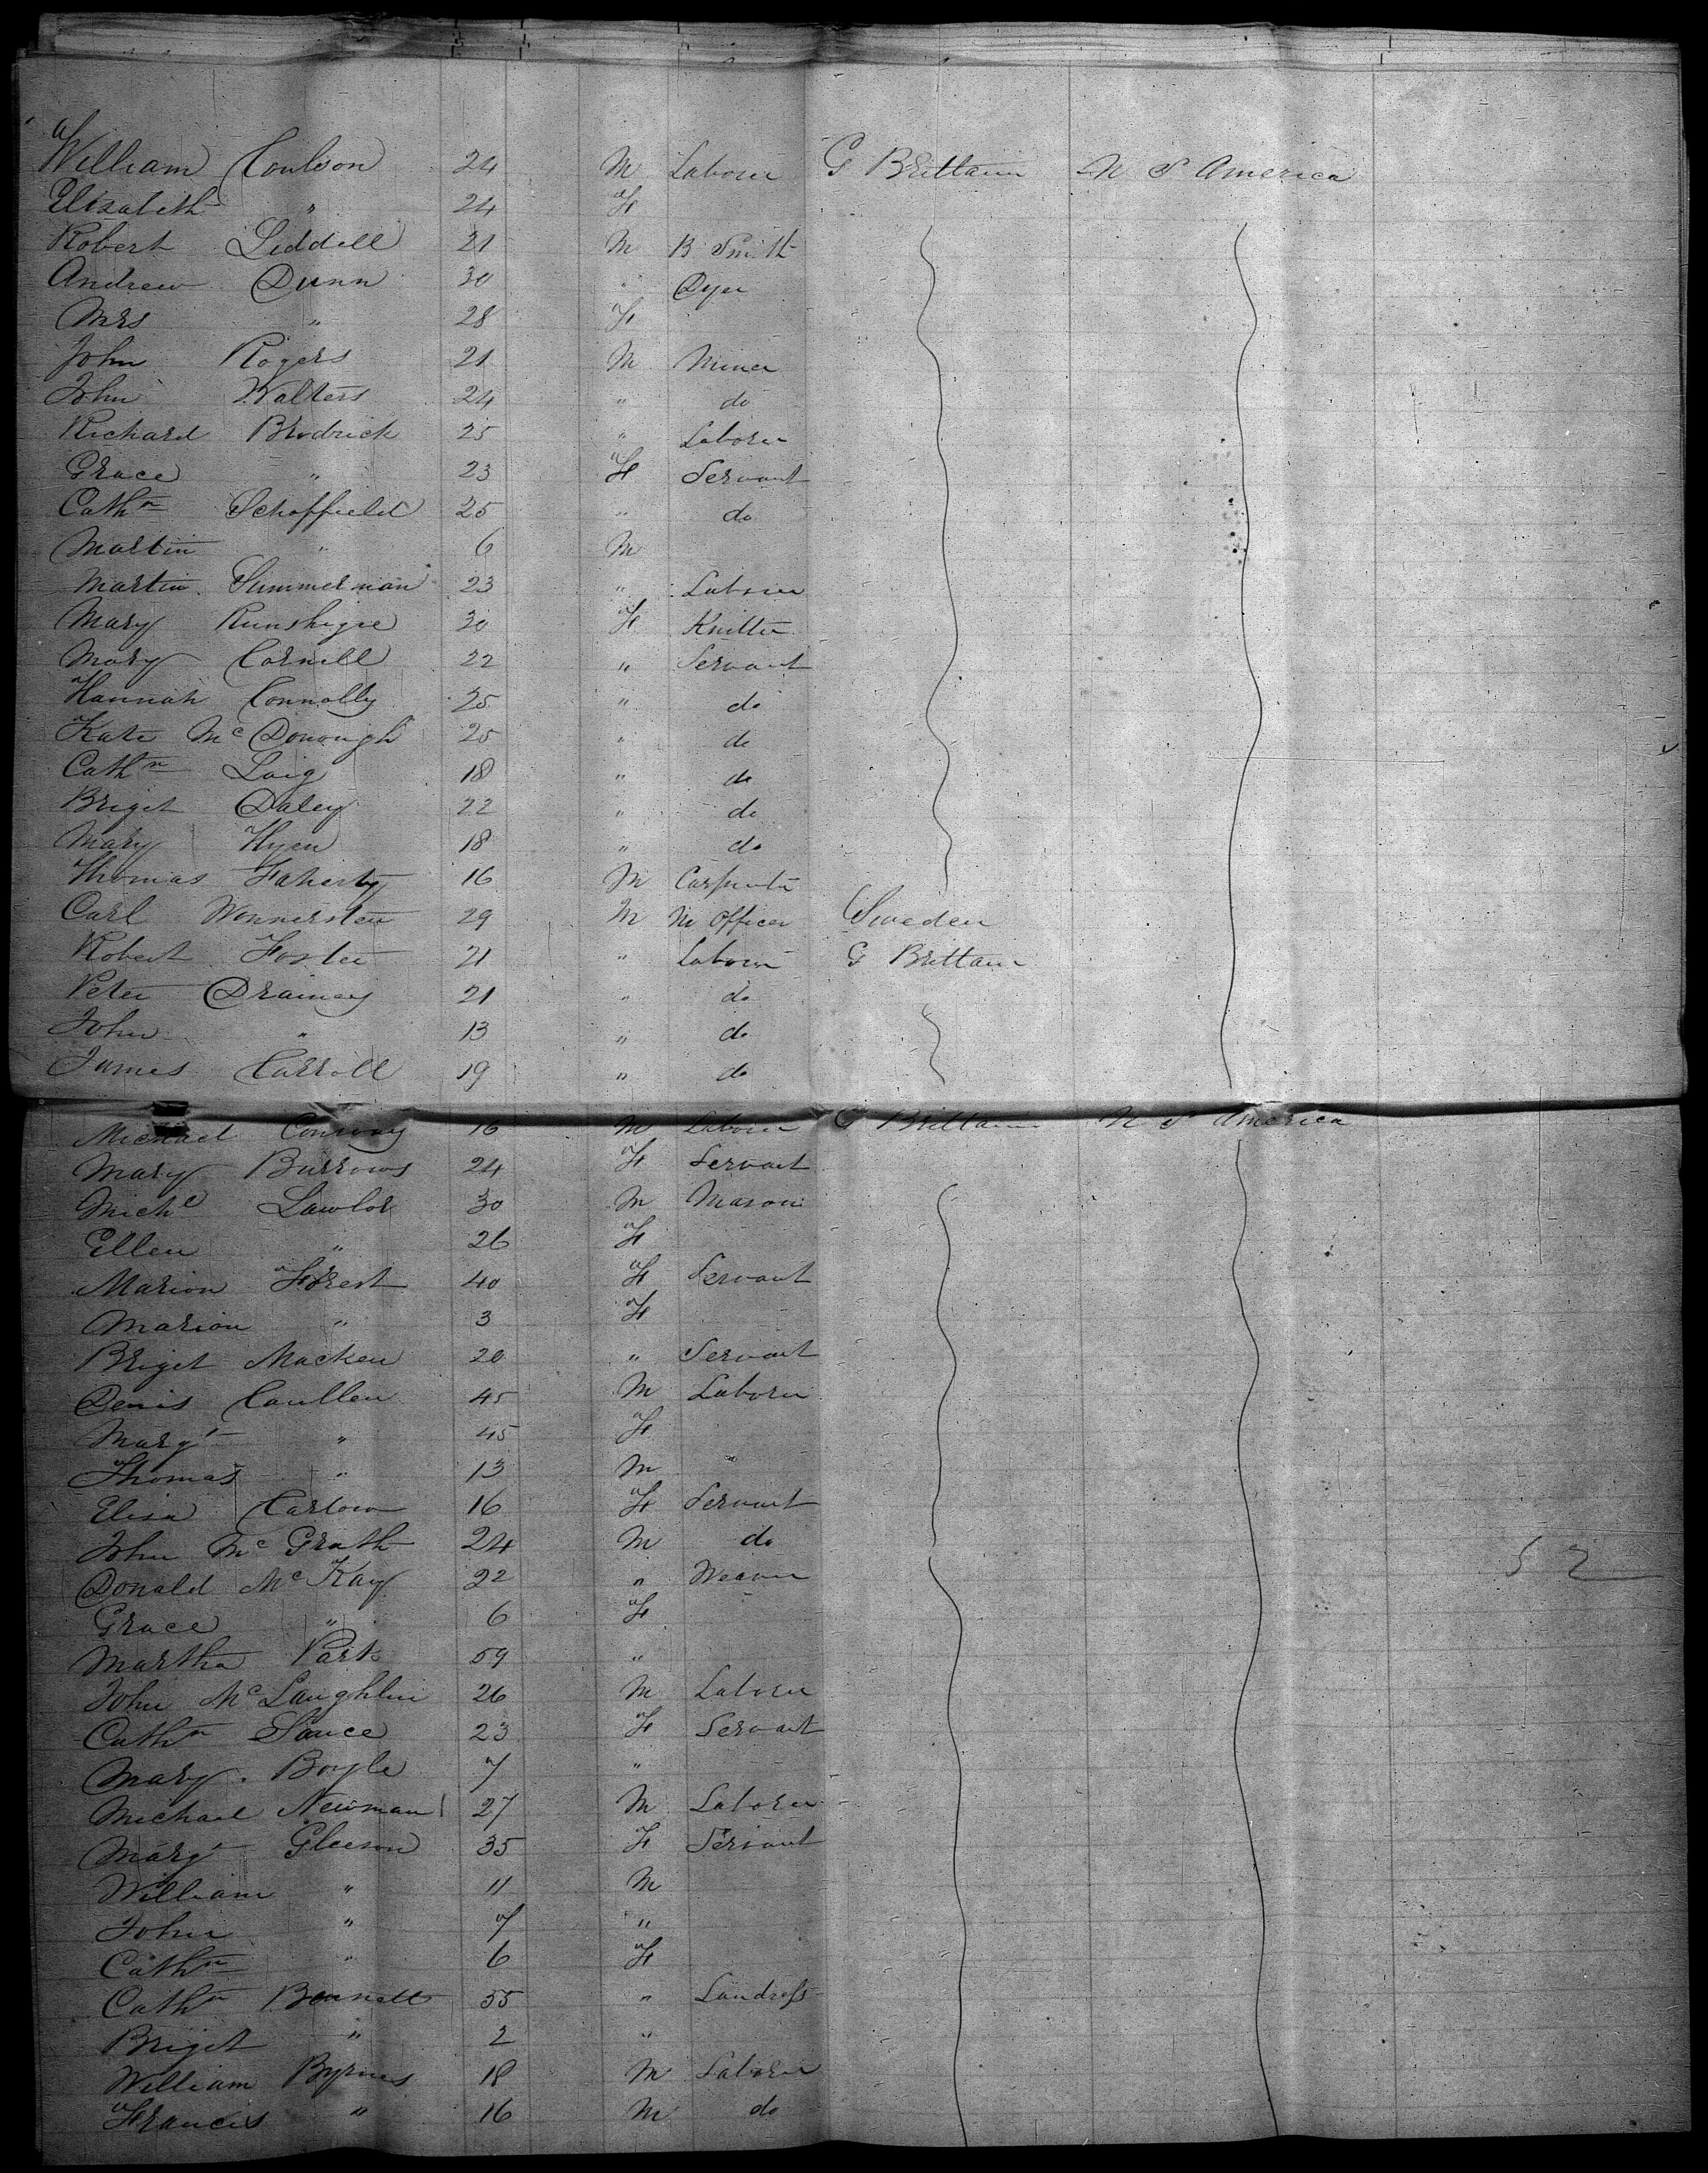 William Coulson 24 M Laborer G Brittain U S America
Elizabeth " 24 F
Robert Liddell 21 M B Smith
Andrew Dunn 30 " Dyer
Mrs " 28 F
John Rogers 21 M Miner
John Walters 24 " do
Richard Brodrick 25 " Laborer
Grace " 23 F Servant
Cathn Schoffield 25 " do
Martin " 6 M
Martin Summerman 23 " Laborer
Mary 30 F Knitter
Mary Cornell 22 " Servant
Hannah Connolly 25 " do
Kate McDonough 25 " do
Cathn 18 " do
Briget Daley 22 " do
Mary Hyen 18 " do
Thomas Faherty 16 M Carpenter
Carl 29 M Officer Sweden
Robert Foster 21 " Laborer G Brittain
Peter Drainey 21 " do
John " 13 " do
James Carroll 19 " do
Michael Conway 16 M Laborer G Brittain U S America
Mary Burrows 24 F Servant
Michl Lawlor 30 M Mason
Ellen " 26 F
Marion Forest 40 F Servant
Marion " 3 F
Briget Macken 20 " Servant
Denis Caullen 45 M Laborer
Margt " 45 F
Thomas " 13 M
Eliza Carlow 16 F Servant
John McGrath 24 M do
Donald McKay 22 " Weaver
Grace " 6 F
Martha Park 59 "
John McLaughlin 26 M Laborer
Cathn 23 F Servant
Mary Boyle 7 "
Michael Newman 27 M Laborer
Margt Gleeson 35 F Servant
William " 11 M
John " 7 "
Cathn " 6 F
Cathn Bennett 55 " Landress
Briget " 2 "
William Byrnes 18 M Laborer
Francis " 16 M do
52